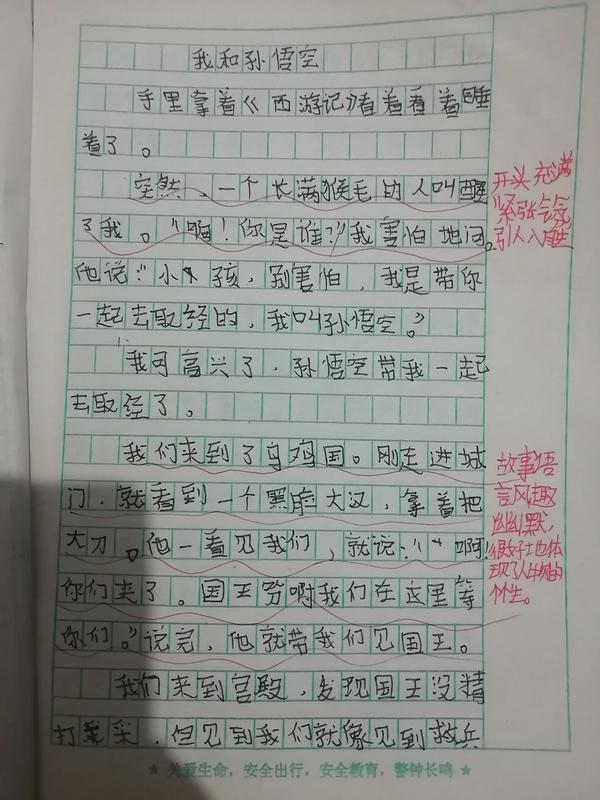 我和孙悟空
手里拿着《西游记》看着看着睡
着了。
突然,一个长满猴毛的人叫醒
了我。"啊!你是谁?"我害怕地问。
他说:"小孩,别害怕,我是带你
一起去取经的,我叫孙悟空。"
我可高兴了,孙悟空带我一起
去取经了。
我们来到了乌鸡国。刚走进城
门,就看到一个黑脸大汉,拿着把
大刀。他一看见我们,就说:"啊!
你们来了。国王吩咐我们在这里等
你们。"说完,他就带我们见国王。
我们来到宫殿,发现国王没精
打采,但见到我们就像见到救兵
开头充满
紧张气氛
引人入胜
故事语
言风趣
幽默,
很好地体
现了人物的
个性。
★ 关爱生命,安全出行,安全教育,警钟长鸣 ★